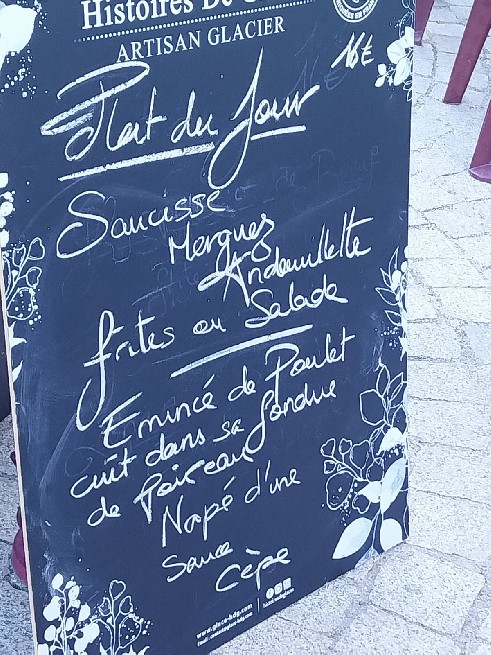 Histoires De
ARTISAN GLACIER
16€
Plat du Jour
Saucisse
Merguez
Andouillette
frites ou Salade
Emincé de Poulet
cuit dans sa fondue
de Poireau
Napé d'une
Sauce
Cèpe
www.glace-hdg.com